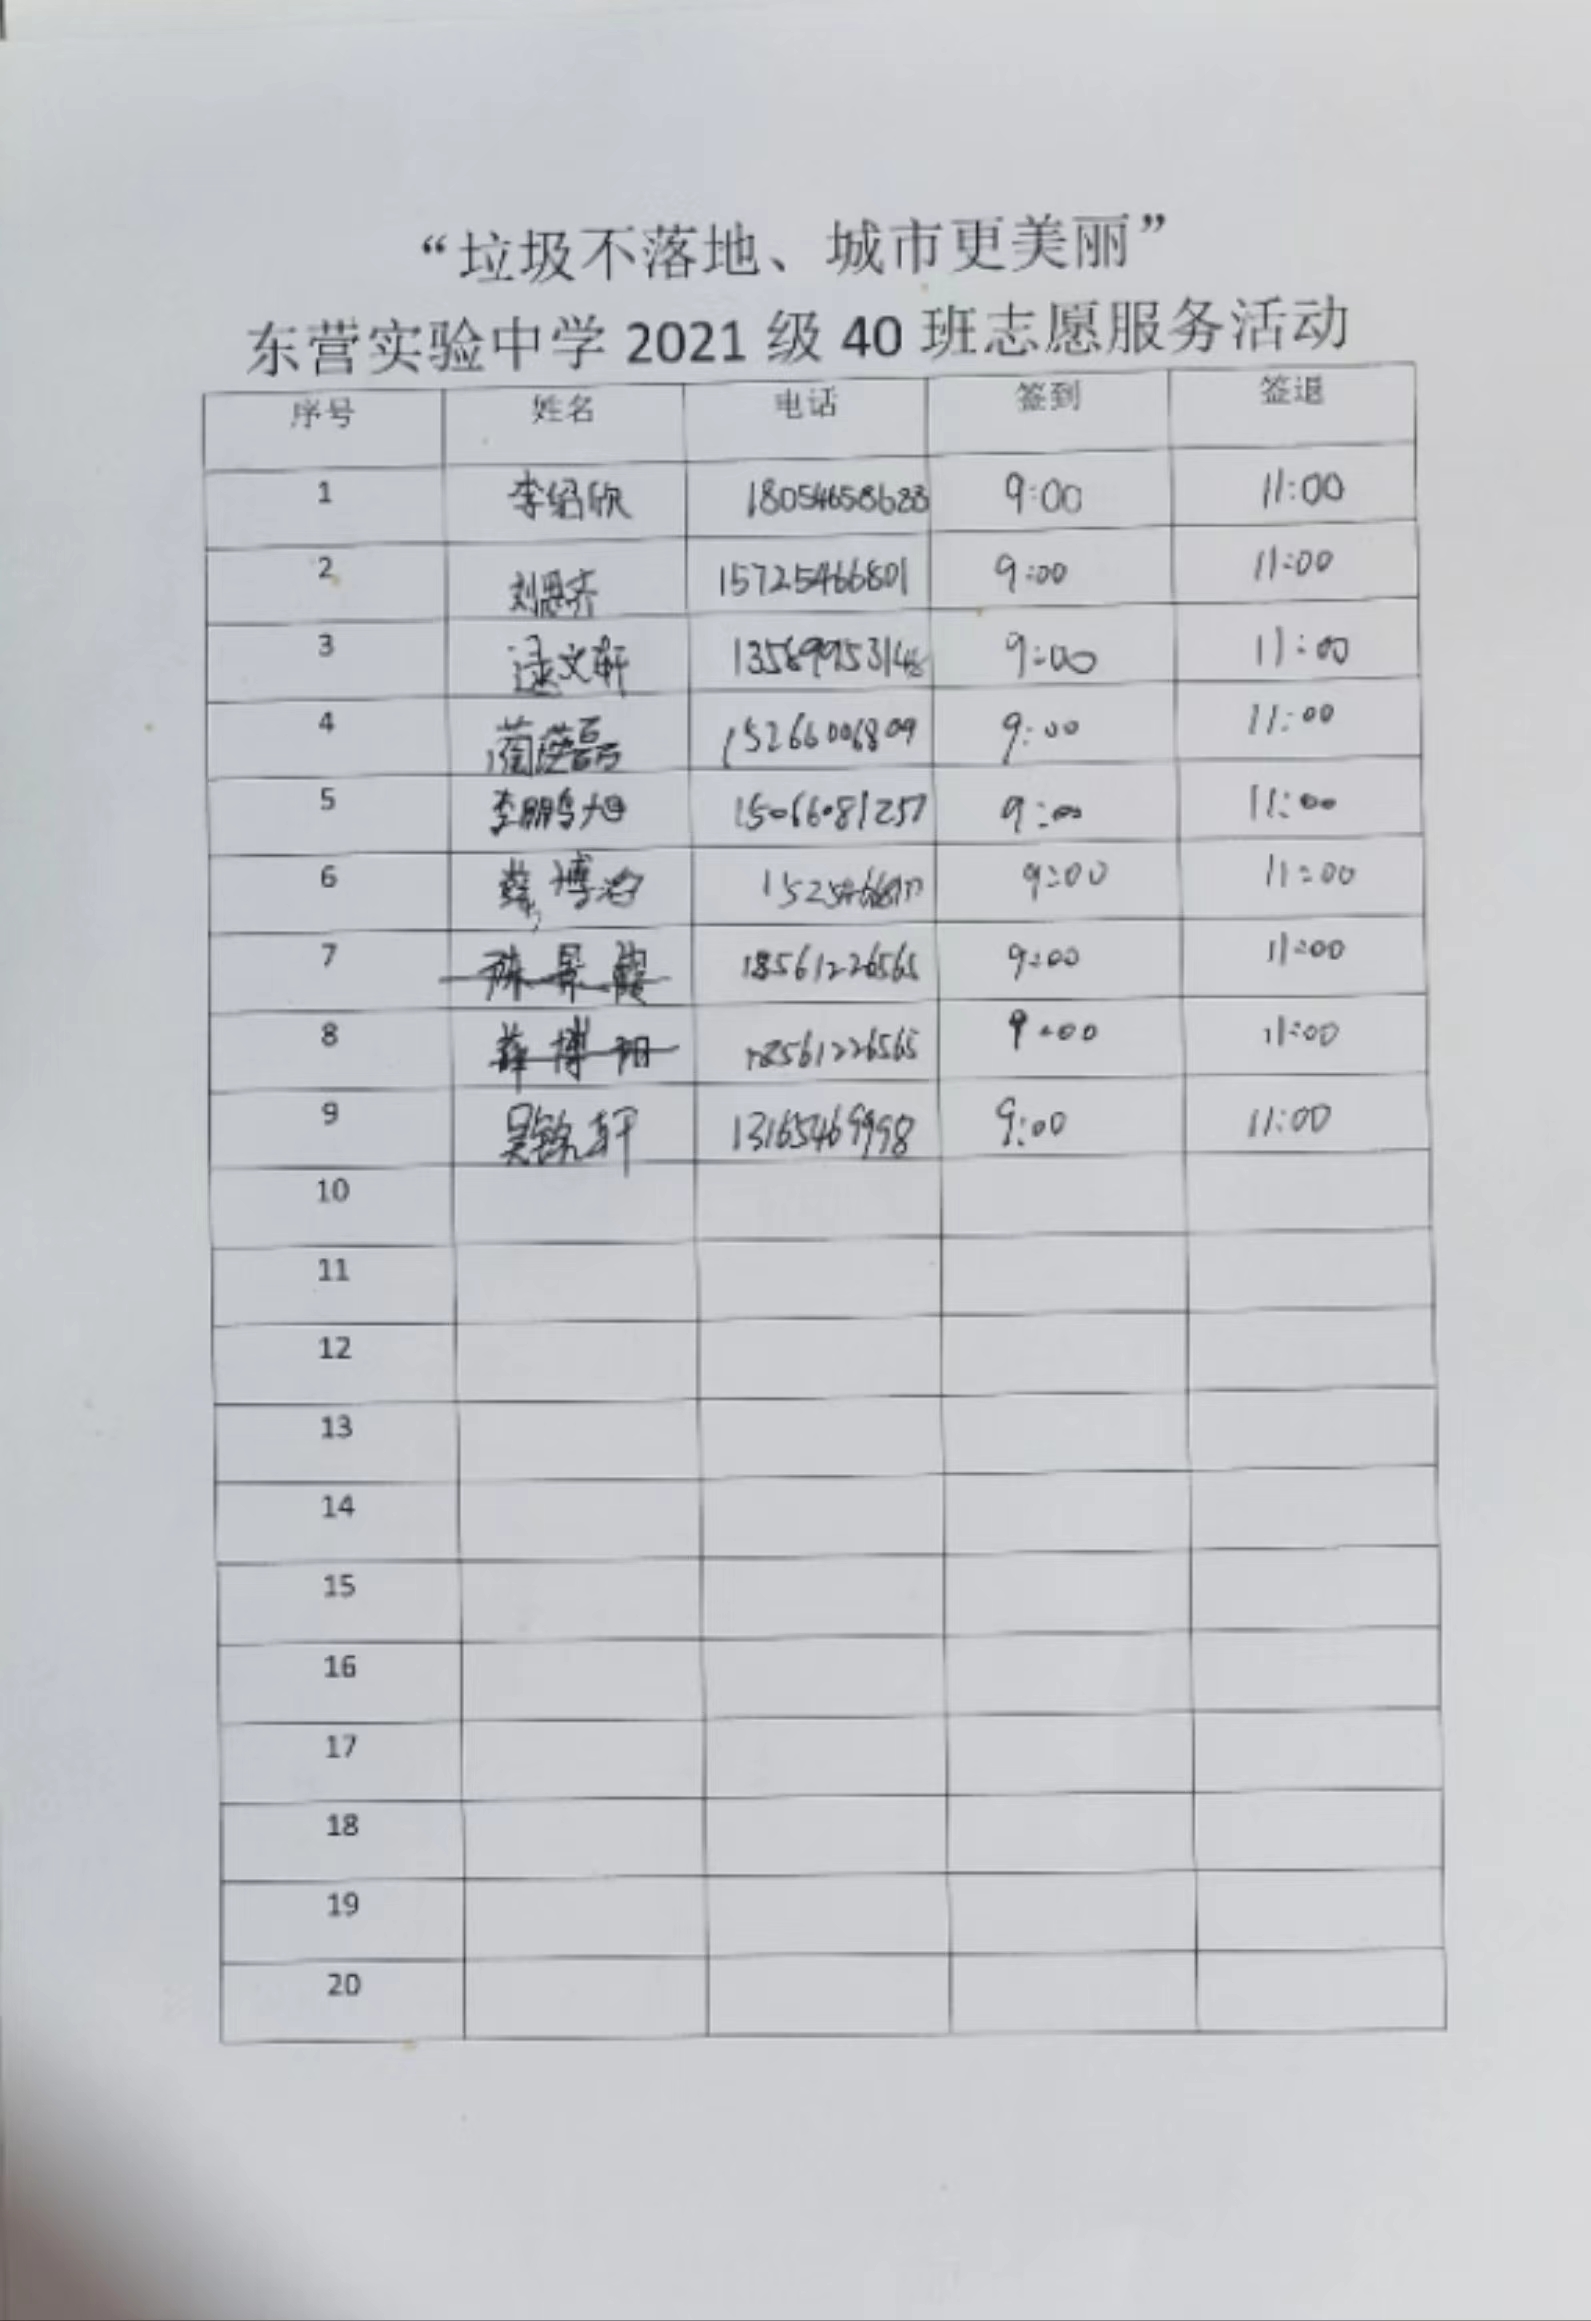 “垃圾不落地、城市更美丽”
东营实验中学 2021 级 40 班志愿服务活动
序号 姓名 电话 签到 签退
1 李绍欣 18054658688 9:00 11:00
2 刘思齐 15725466801 9:00 11:00
3 逯文轩 13589953148 9:00 11:00
4 15266006809 9:00 11:00
5 李鹏旭 15066081257 9:00 11:00
6 薛博 9:00 11:00
7 陈景霞 18561226565 9:00 11:00
8 薛博阳 18561226565 9:00 11:00
9 吴铭轩 13165469998 9:00 11:00
10
11
12
13
14
15
16
17
18
19
20